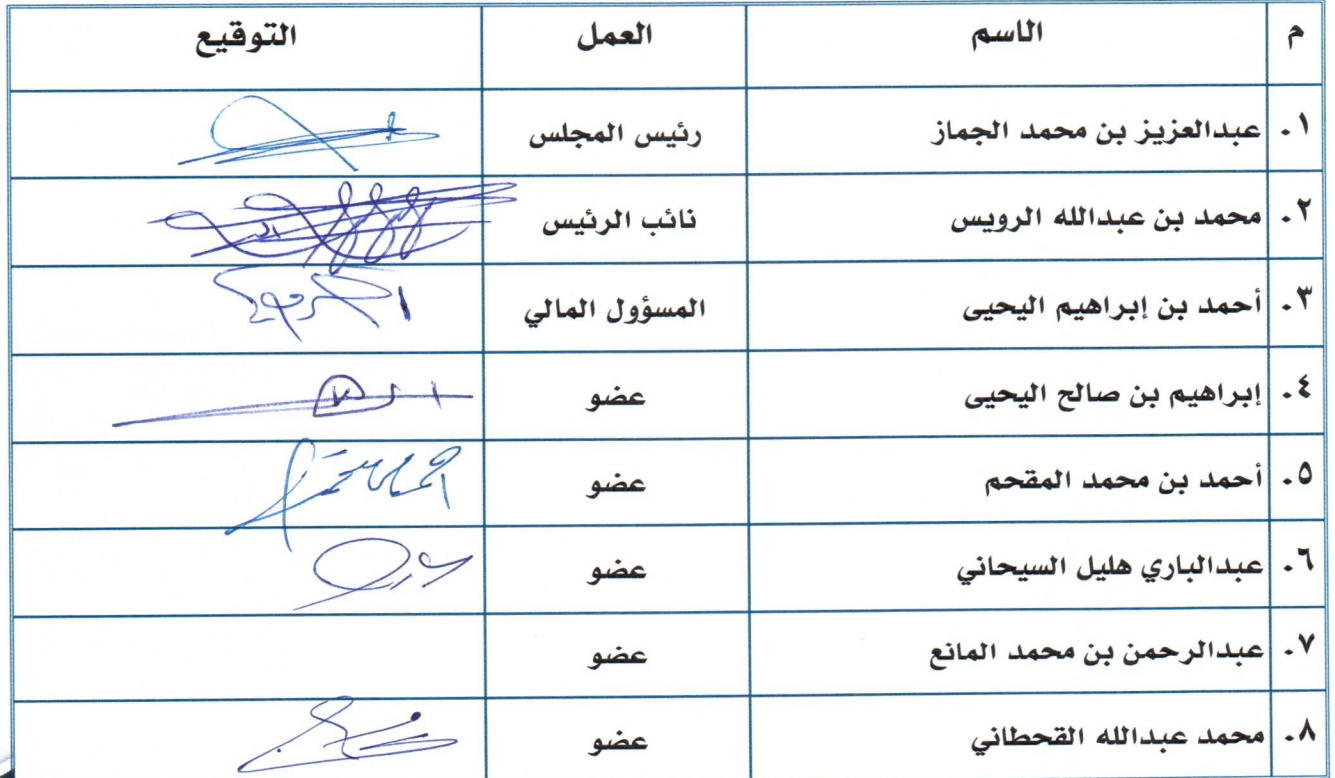 م الاسم العمل التوقيع
١. عبدالعزيز بن محمد الجماز رئيس المجلس
٢. محمد بن عبدالله الرويس نائب الرئيس
٣. أحمد بن إبراهيم اليحيى المسؤول المالي
٤. إبراهيم بن صالح اليحيى عضو
٥. أحمد بن محمد المقحم عضو
٦. عبدالباري هليل السيحاني عضو
٧. عبدالرحمن بن محمد المانع عضو
٨. محمد عبدالله القحطاني عضو